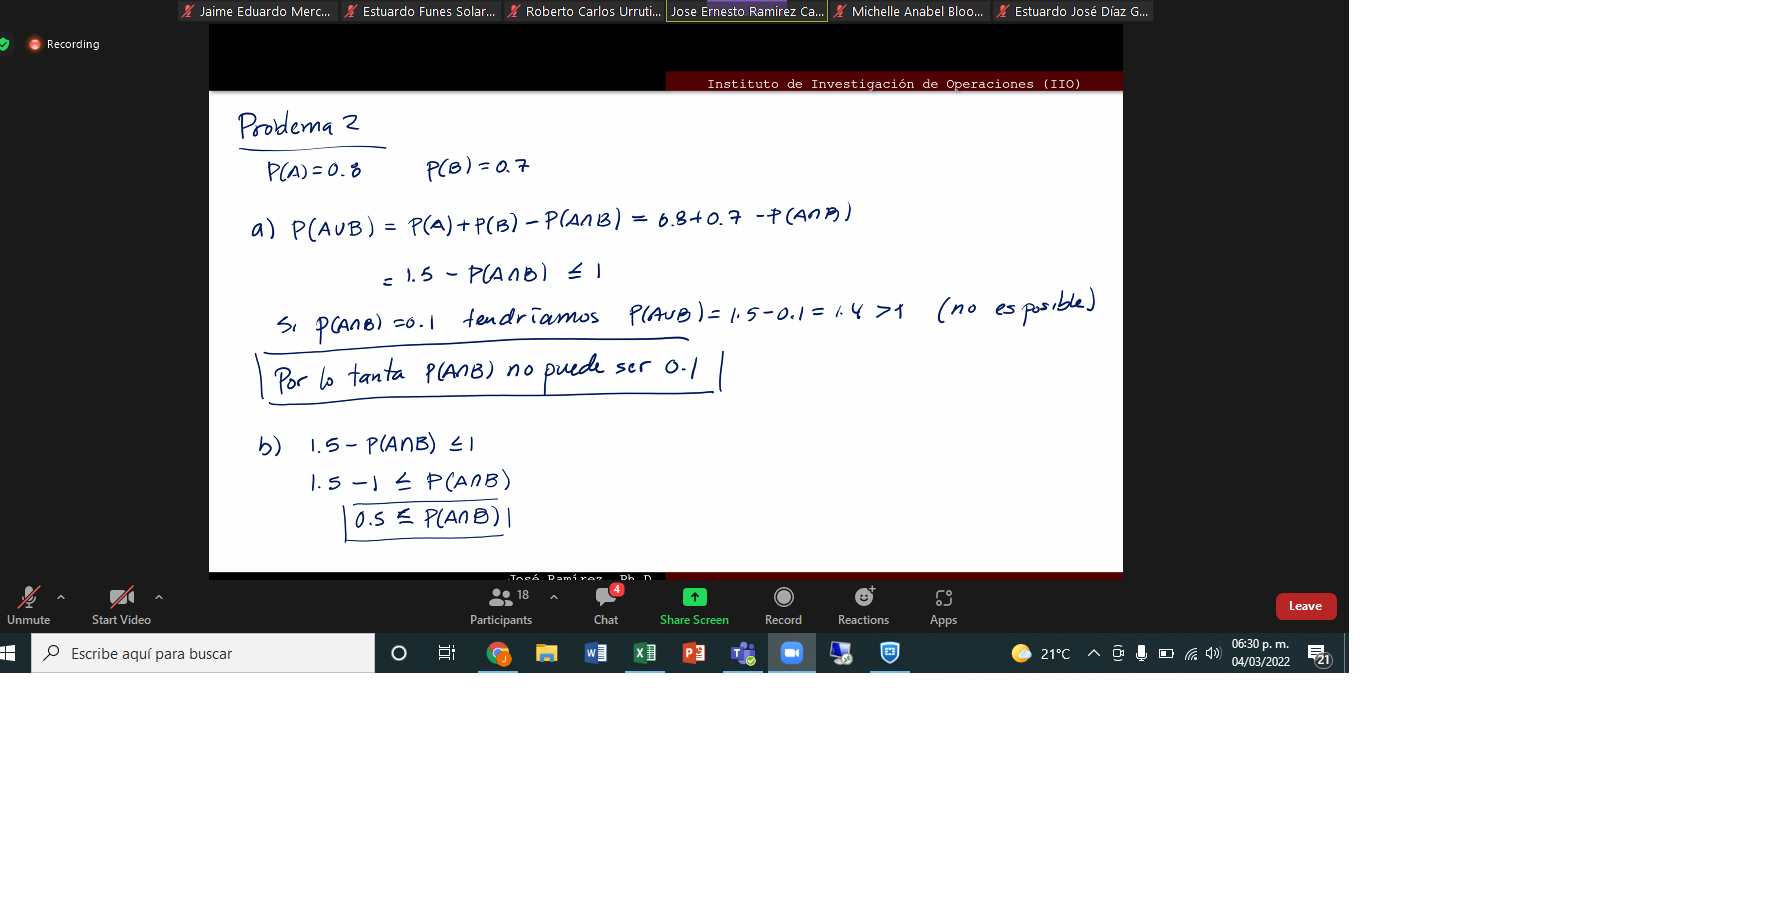 Jaime Eduardo Merc... Estuardo Funes Solar... Roberto Carlos Urruti... Jose Ernesto Ramirez Ca... Michelle Anabel Bloo... Estuardo José Díaz G...
Recording
Instituto de Investigación de Operaciones (IIO)
Problema 2
P(A)=0.8 P(B)=0.7
a) P(A∪B) = P(A)+P(B)-P(A∩B) = 0.8+0.7 -P(A∩B)
= 1.5 - P(A∩B) ≤ 1
Si P(A∩B)=0.1 tendríamos P(A∪B)=1.5-0.1=1.4 >1 (no es posible)
Por lo tanta P(A∩B) no puede ser 0.1
b) 1.5- P(A∩B) ≤1
1.5 -1 ≤ P(A∩B)
0.5 ≤ P(A∩B)
José Ramírez, Ph.D
18 4
Unmute Start Video Participants Chat Share Screen Record Reactions Apps Leave
Escribe aquí para buscar 21°C 06:30 p. m.
04/03/2022 21